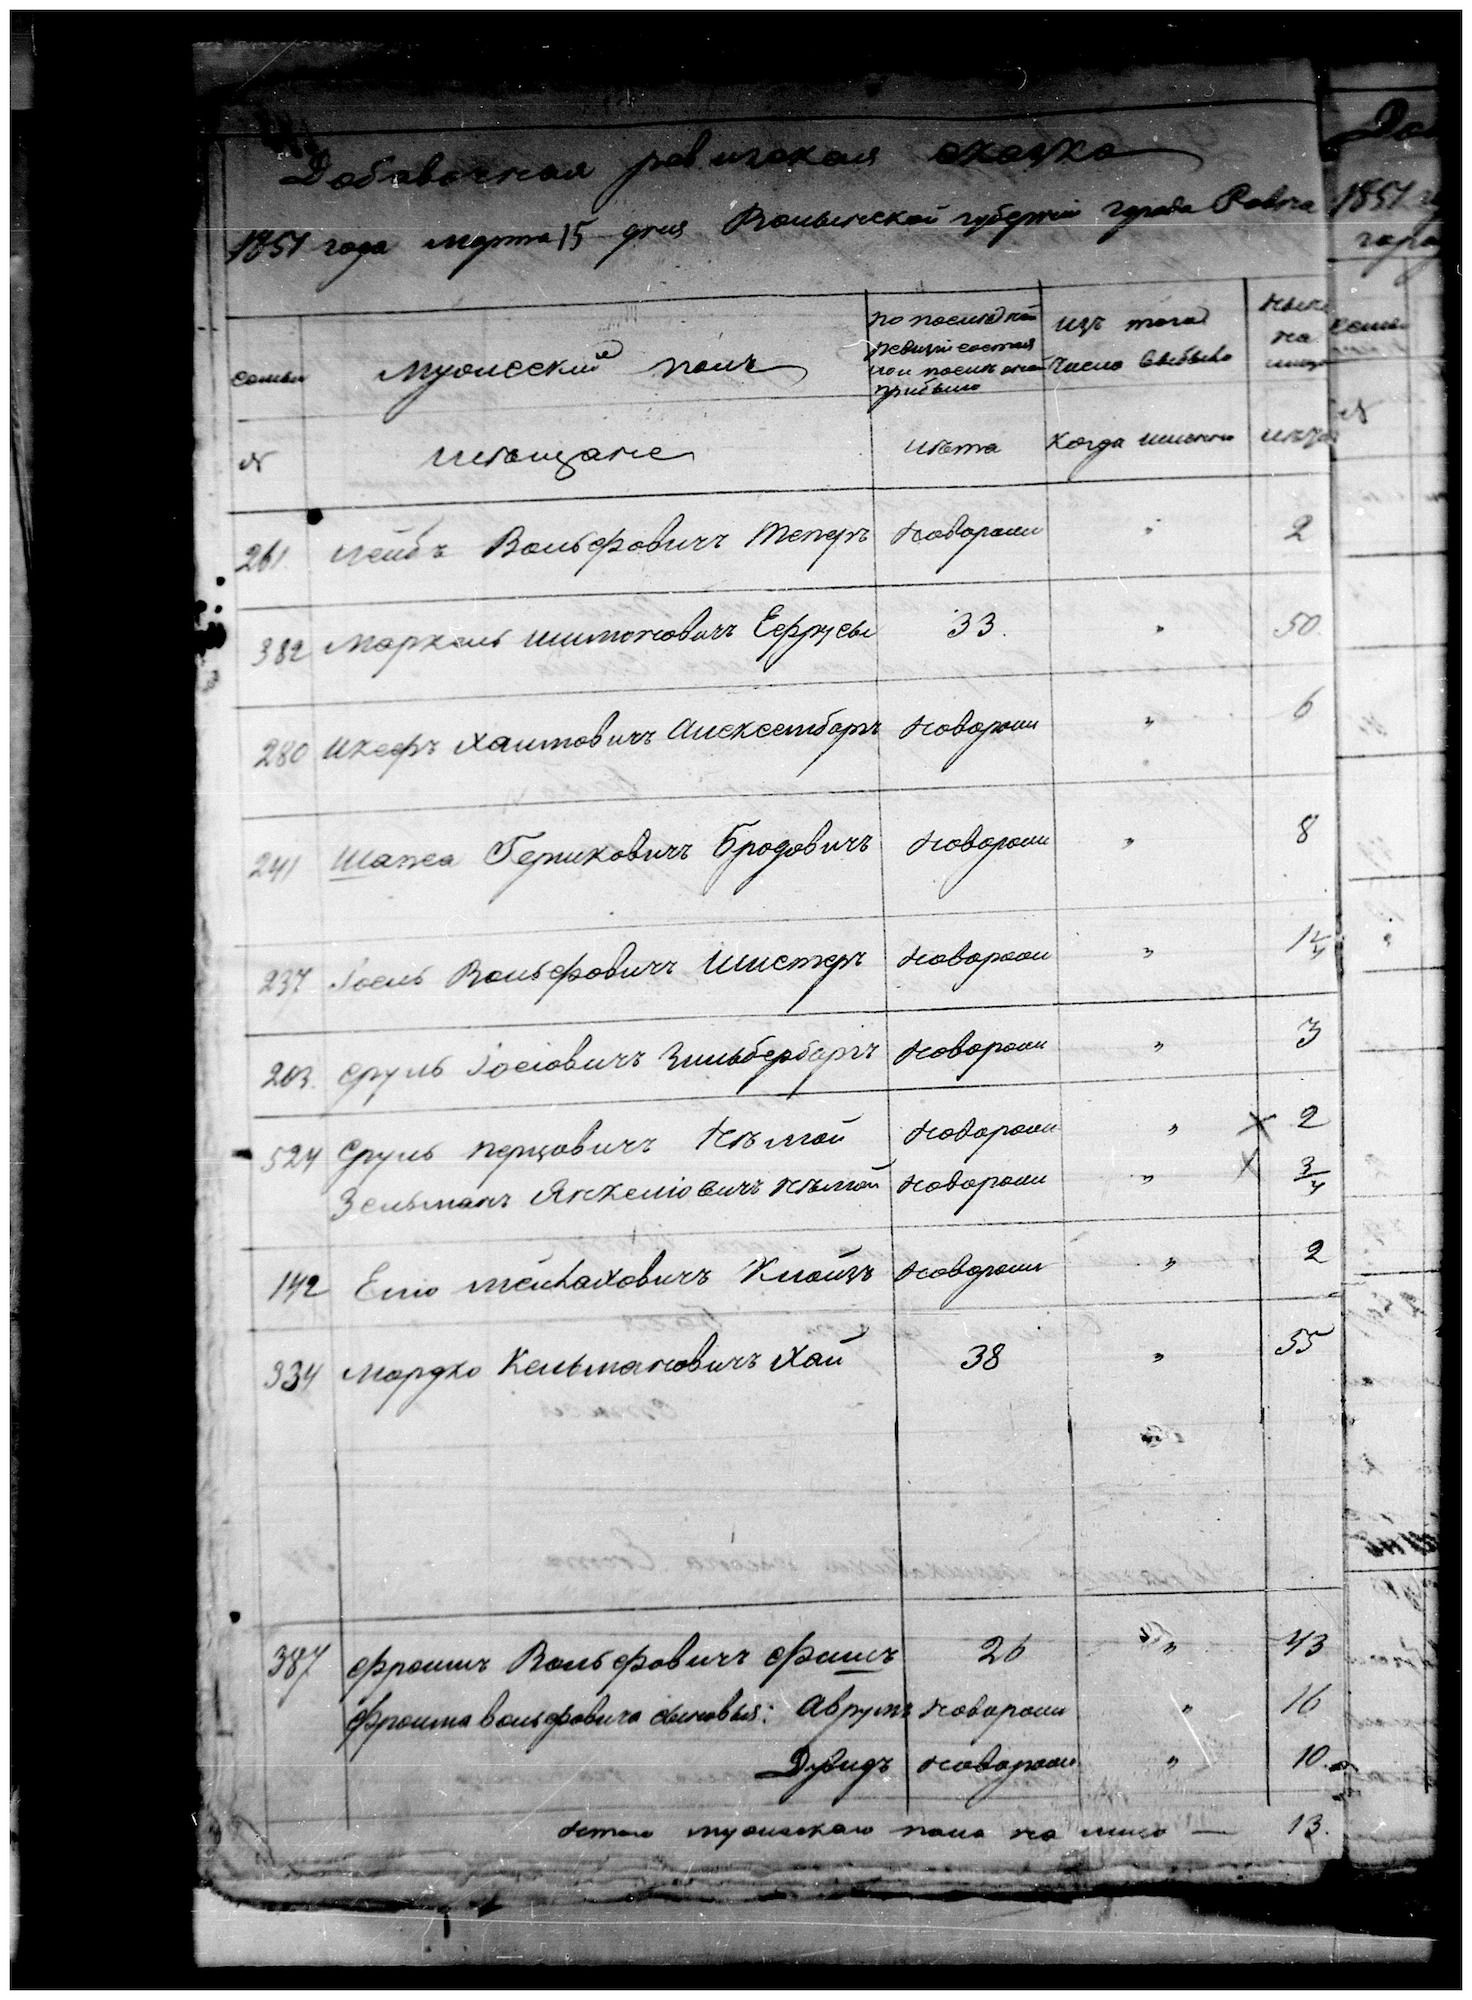 Добавочная ревизская сказка
1851 года марта 15 дня Волынской губернии города Ровна
семьи
Мужеский полъ
по последней ревизии состояло и после оной прибыло
изъ того числа выбыло
ныне на лицо
№
мещане
лета
Когда именно
лета
261 Лейбъ Вольфовичъ Теперъ новорожи " 2
382 Маркель Шимоновичъ Ефрусы 33. " 50
280 Икефъ Хаимовичъ Алексенбаръ новорожи " 6
241 Шапса Гершковичъ Бродовичъ новорожи " 8
237 Іоель Вольфовичъ Шистеръ новорожи " 1 1/4
203. Сруль Іосіовичъ Зильбербаргъ новорожи " 3
524 Сруль Перцовичъ Немой новорожи " X 2
Зельманъ Янкеліовичъ немой новорожи " X 3/4
142 Еліо Мейлаховичъ Клойцъ новорожи " 2
334 Мордко Кельмановичъ Хай 38 " 55
387 Фроимъ Вольфовичъ Фишъ 26 " 43
Фроима Вольфовича сыновья: Аврумъ новорожи " 16
Дувидъ новорожи " 10
Итого мужескаго пола на лицо — 13.
1851